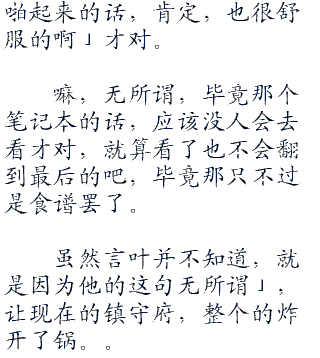 啪起来的话，肯定，也很舒
服的啊」才对。
嘛，无所谓，毕竟那个
笔记本的话，应该没人会去
看才对，就算看了也不会翻
到最后的吧，毕竟那只不过
是食谱罢了。
虽然言叶并不知道，就
是因为他的这句无所谓」，
让现在的镇守府，整个的炸
开了锅。。